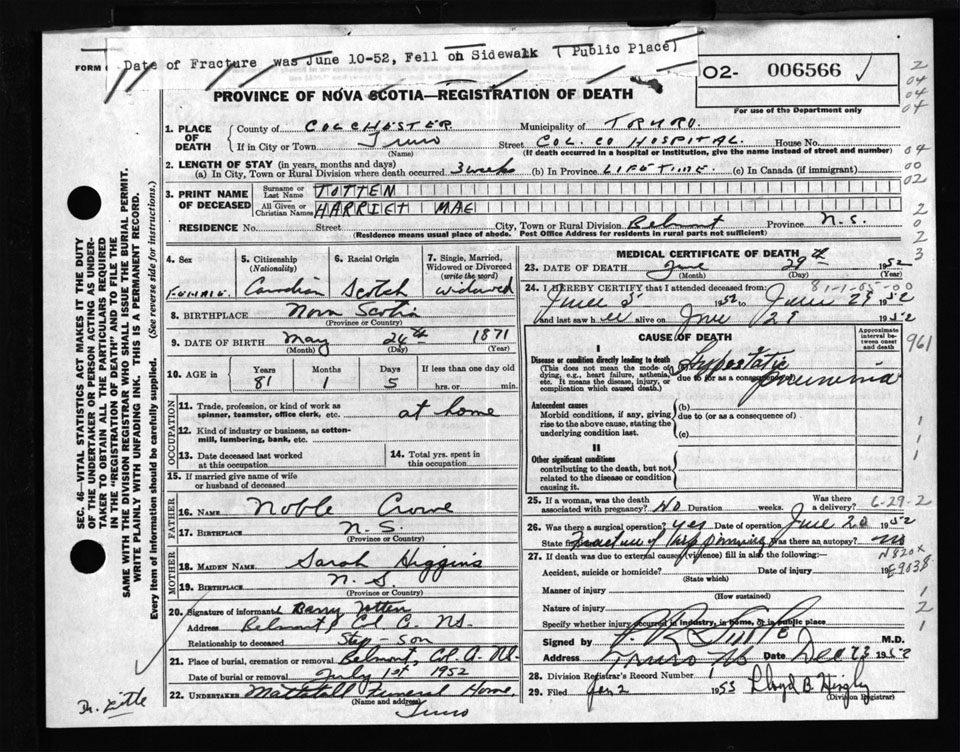 Date of Fracture was June 10-52, Fell on Sidewalk ( Public Place)
FORM
O2- 006566 ✓
For use of the Department only
PROVINCE OF NOVA SCOTIA—REGISTRATION OF DEATH
1. PLACE OF DEATH { County of COLCHESTER Municipality of TRURO.
If in City or Town Truro Street COL. CO HOSPITAL. House No.
(Name) (If death occurred in a hospital or institution, give the name instead of street and number)
2. LENGTH OF STAY (in years, months and days)
(a) In City, Town or Rural Division where death occurred. 3 weeks (b) In Province LIFETIME. (c) In Canada (if immigrant)
3. PRINT NAME OF DECEASED { Surname or Last Name TOTTEN
All Given or Christian Names HARRIET MAE
RESIDENCE No. Street City, Town or Rural Division Belmont Province N.S.
(Residence means usual place of abode. Post Office Address for residents in rural parts not sufficient)
4. Sex
FEMALE.
5. Citizenship (Nationality)
Canadian
6. Racial Origin
Scotch
7. Single, Married, Widowed or Divorced (write the word)
widowed
8. BIRTHPLACE Nova Scotia
(Province or Country)
9. DATE OF BIRTH May 24th 1871
(Month) (Day) (Year)
10. AGE in Years Months Days If less than one day old
81 1 5 hrs. or min.
OCCUPATION
11. Trade, profession, or kind of work as spinner, teamster, office clerk, etc. at home
12. Kind of industry or business, as cotton-mill, lumbering, bank, etc.
13. Date deceased last worked at this occupation
14. Total yrs. spent in this occupation
15. If married give name of wife or husband of deceased
FATHER
16. NAME Noble Crowe
17. BIRTHPLACE N.S.
(Province or Country)
MOTHER
18. MAIDEN NAME Sarah Higgins
19. BIRTHPLACE N.S.
(Province or Country)
20. Signature of informant Barry Totten
Address Belmont, Col. C. NS.
Relationship to deceased Step-son
21. Place of burial, cremation or removal Belmont, Col.
Date of burial or removal July 1st 1952
22. UNDERTAKER Mattatall Funeral Home,
(Name and address)
Truro
Dr. Little
MEDICAL CERTIFICATE OF DEATH
23. DATE OF DEATH June 29th 1952
(Month) (Day) (Year)
81-1-05-00
24. I HEREBY CERTIFY that I attended deceased from:
June 5 1952 to June 29 1952
and last saw her alive on June 29 1952
CAUSE OF DEATH
Approximate interval between onset and death
961
I
Disease or condition directly leading to death
(This does not mean the mode of dying, e.g., heart failure, asthenia, etc. It means the disease, injury, or complication which caused death.)
(a) Hypostatic pneumonia
due to (or as a consequence of)
Antecedent causes
Morbid conditions, if any, giving rise to the above cause, stating the underlying condition last.
(b)
due to (or as a consequence of)
(c)
II
Other significant conditions
contributing to the death, but not related to the disease or condition causing it.
25. If a woman, was the death associated with pregnancy? NO Duration weeks. Was there a delivery?
6-29-2
26. Was there a surgical operation? yes Date of operation June 20 1952
State findings Fracture of Hip Was there an autopsy? no
27. If death was due to external causes (violence) fill in also the following:—
N820x
Accident, suicide or homicide? Date of injury 19
E9038
(State which)
Manner of injury
(How sustained)
Nature of injury
Specify whether injury occurred in industry, in home, or in public place
Signed by M.D.
Address Truro NS Date Dec 23 1952
28. Division Registrar's Record Number 1
29. Filed Jan 2 1953 Lloyd B.
(Division Registrar)
SEC. 46—VITAL STATISTICS ACT MAKES IT THE DUTY
OF THE UNDERTAKER OR PERSON ACTING AS UNDER-
TAKER TO OBTAIN ALL THE PARTICULARS REQUIRED
IN THE "REGISTRATION OF DEATH" AND TO FILE THE
SAME WITH THE DIVISION REGISTRAR WHO SHALL ISSUE THE BURIAL PERMIT.
WRITE PLAINLY WITH UNFADING INK. THIS IS A PERMANENT RECORD.
Every item of information should be carefully supplied. (See reverse side for instructions.)
2
04
04
04
00
02
2
0
2
3
1
1
1
1
2
1